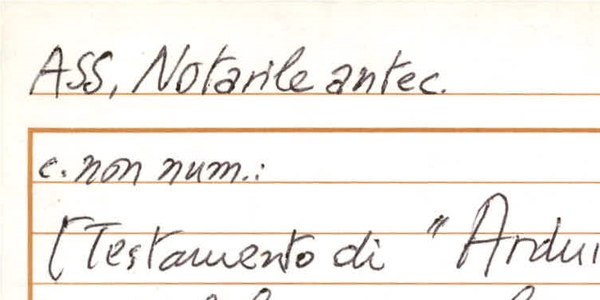 ASS, Notarile antec.
c. non num.:
[Testamento di "